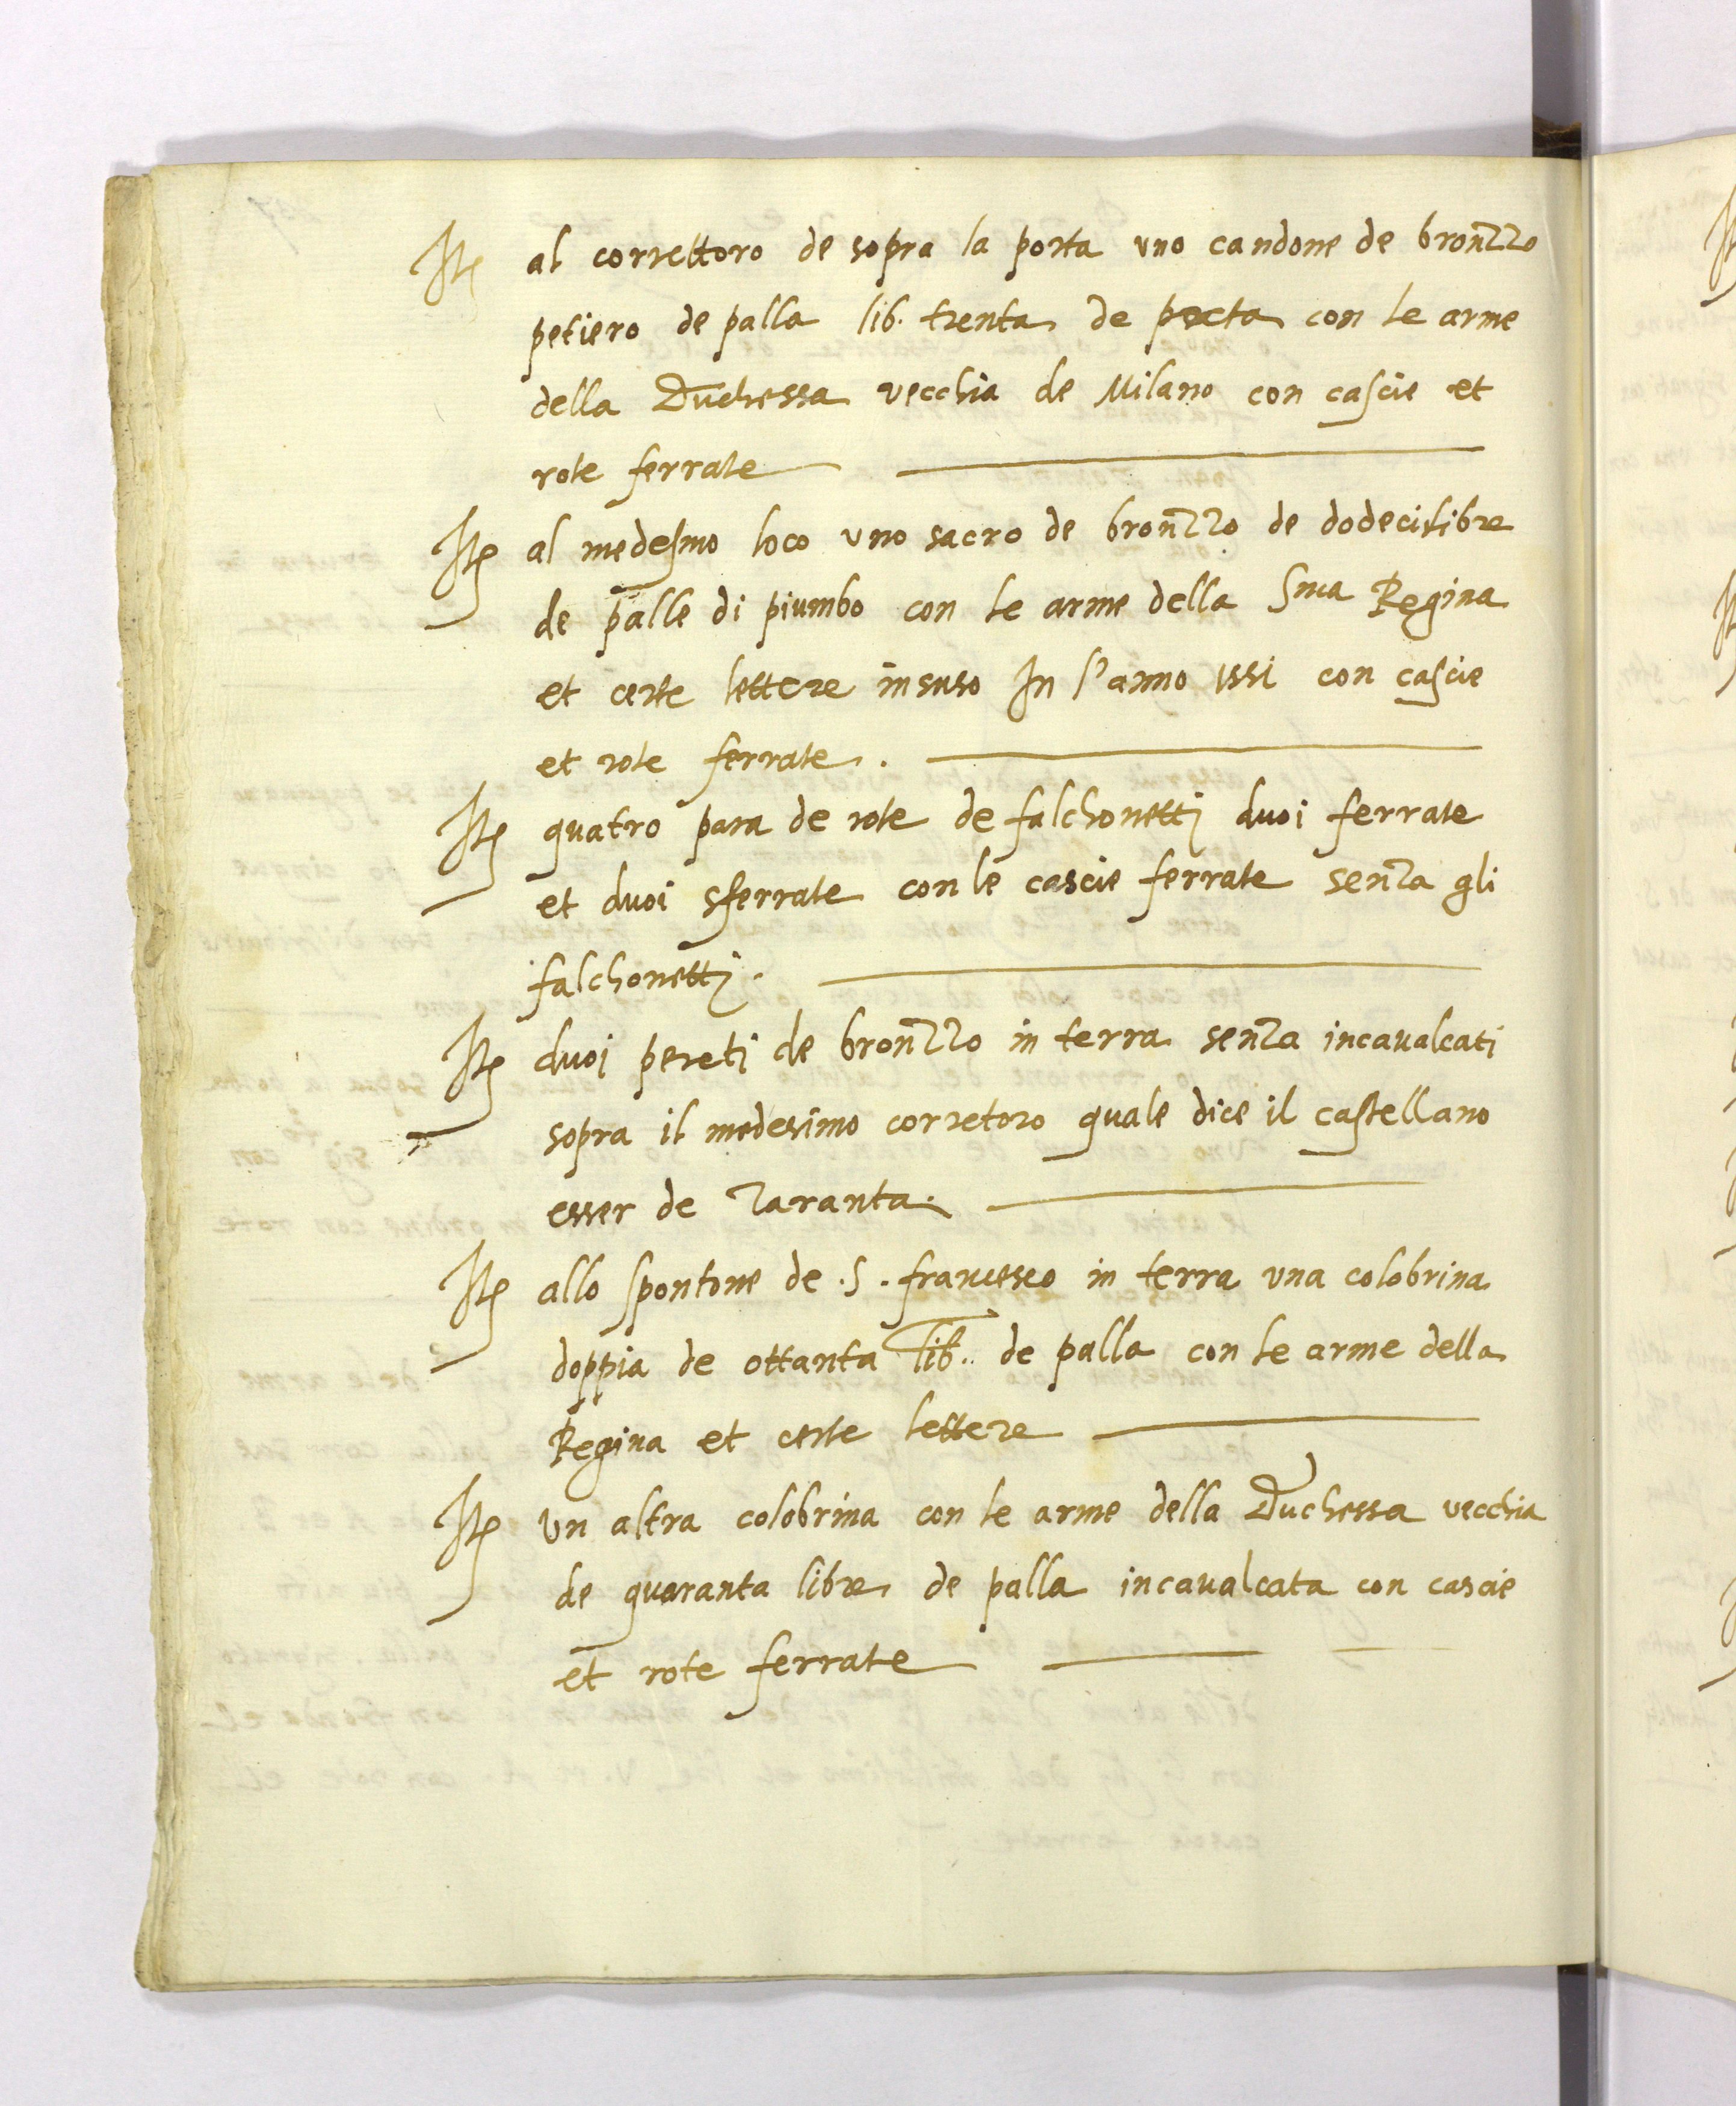 Itē al correttoro de sopra la porta uno candone de bronzzo
petiero de palla lib. trenta de con le arme
della Duchessa vecchia de Milano con cascie et
rote ferrate
Itē al medesmo loco uno sacro de bronzzo de dodeci libre
de palle di piumbo con le arme della Sma Regina
et certe lettere insuso In l'anno 1551 con cascie
et rote ferrate.
Itē quatro para de rote de falchonetti duoi ferrate
et duoi sferrate con le cascie ferrate senza gli
falchonetti.
Itē duoi pereti de bronzzo in terra senza incavalcati
sopra il medesimo corretoro quale dice il castellano
esser de Taranta.
Itē allo spontone de .S. francesco in terra una colobrina
doppia de ottanta lib.. de palla con le arme della
Regina et certe lettere
Itē un altra colobrina con le arme della Duchessa vecchia
de quaranta libre de palla incavalcata con cascie
et rote ferrate